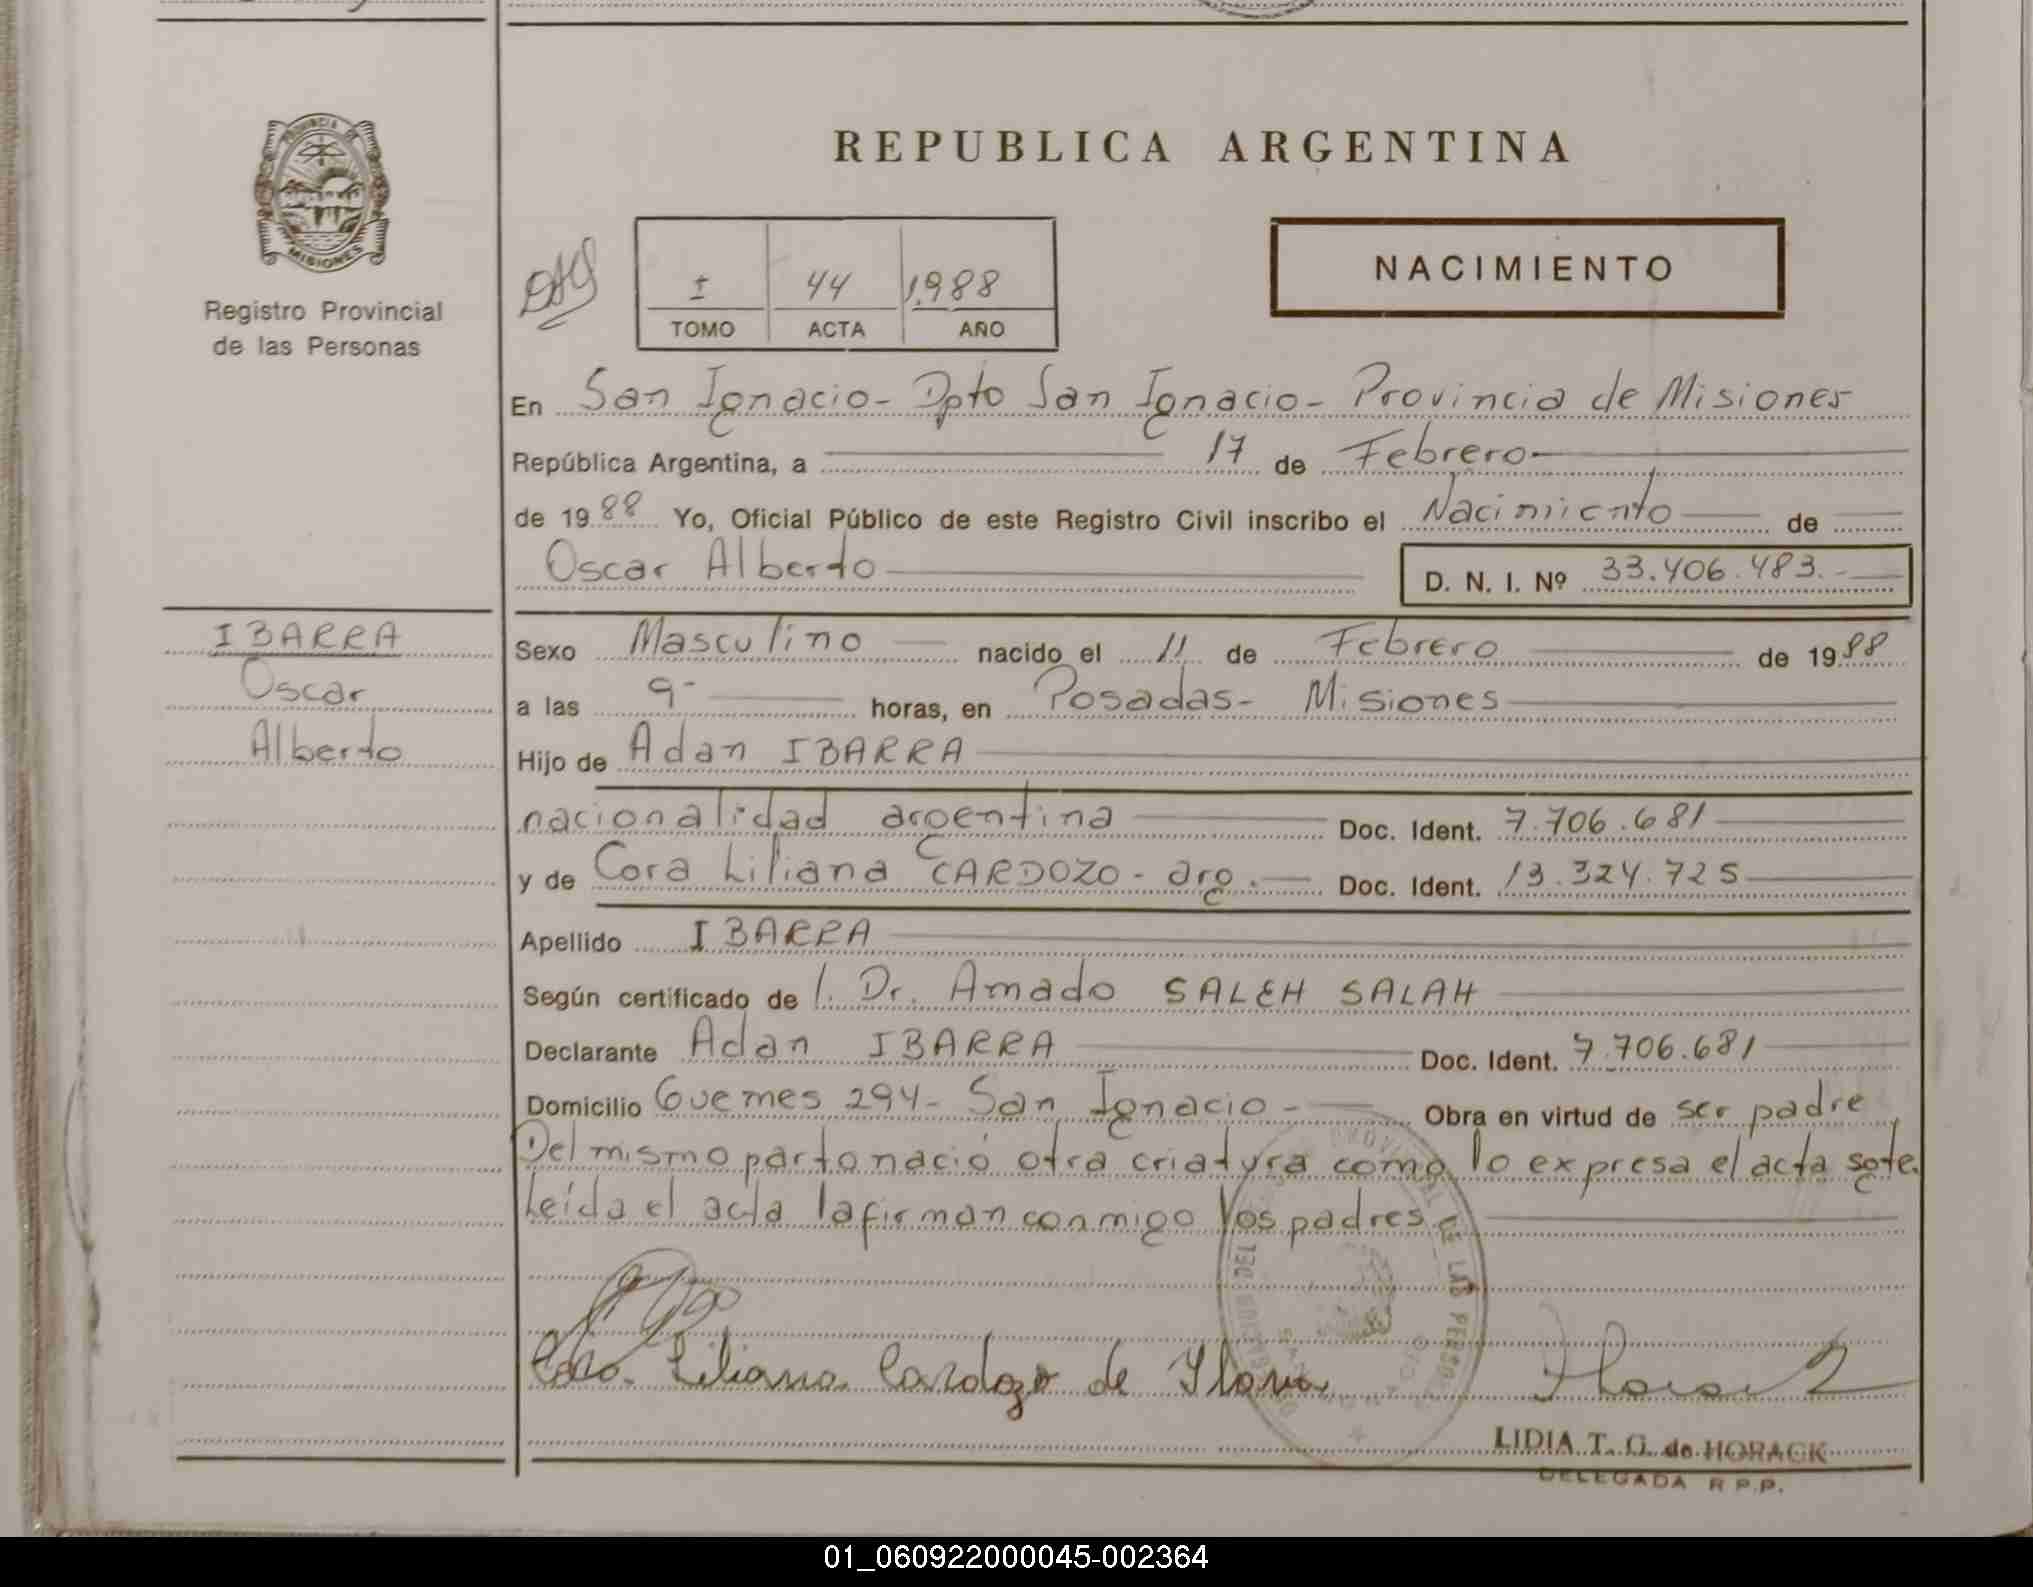 PROVINCIA DE
MISIONES
Registro Provincial
de las Personas
REPUBLICA ARGENTINA
I 44 1.988
TOMO ACTA AÑO
NACIMIENTO
En San Ignacio- Dpto San Ignacio- Provincia de Misiones
República Argentina, a 17 de Febrero
de 1988 Yo, Oficial Público de este Registro Civil inscribo el Nacimiento de
Oscar Alberto D. N. I. Nº 33.406.483.-
IBARRA
Oscar
Alberto
Sexo Masculino nacido el 11 de Febrero de 1988
a las 9- horas, en Posadas- Misiones
Hijo de Adan IBARRA
nacionalidad argentina Doc. Ident. 7.706.681
y de Cora Liliana CARDOZO - arg. Doc. Ident. 13.324.725
Apellido IBARRA
Según certificado de l. Dr. Amado SALEH SALAH
Declarante Adan IBARRA Doc. Ident. 7.706.681
Domicilio Guemes 294- San Ignacio - Obra en virtud de ser padre
Del mismo parto nació otra criatura como lo expresa el acta sgte.
Leída el acta la firman conmigo los padres
Cora Liliana Cardozo de
LIDIA T. G. de HORACK
DELEGADA R.P.P.
01_060922000045-002364